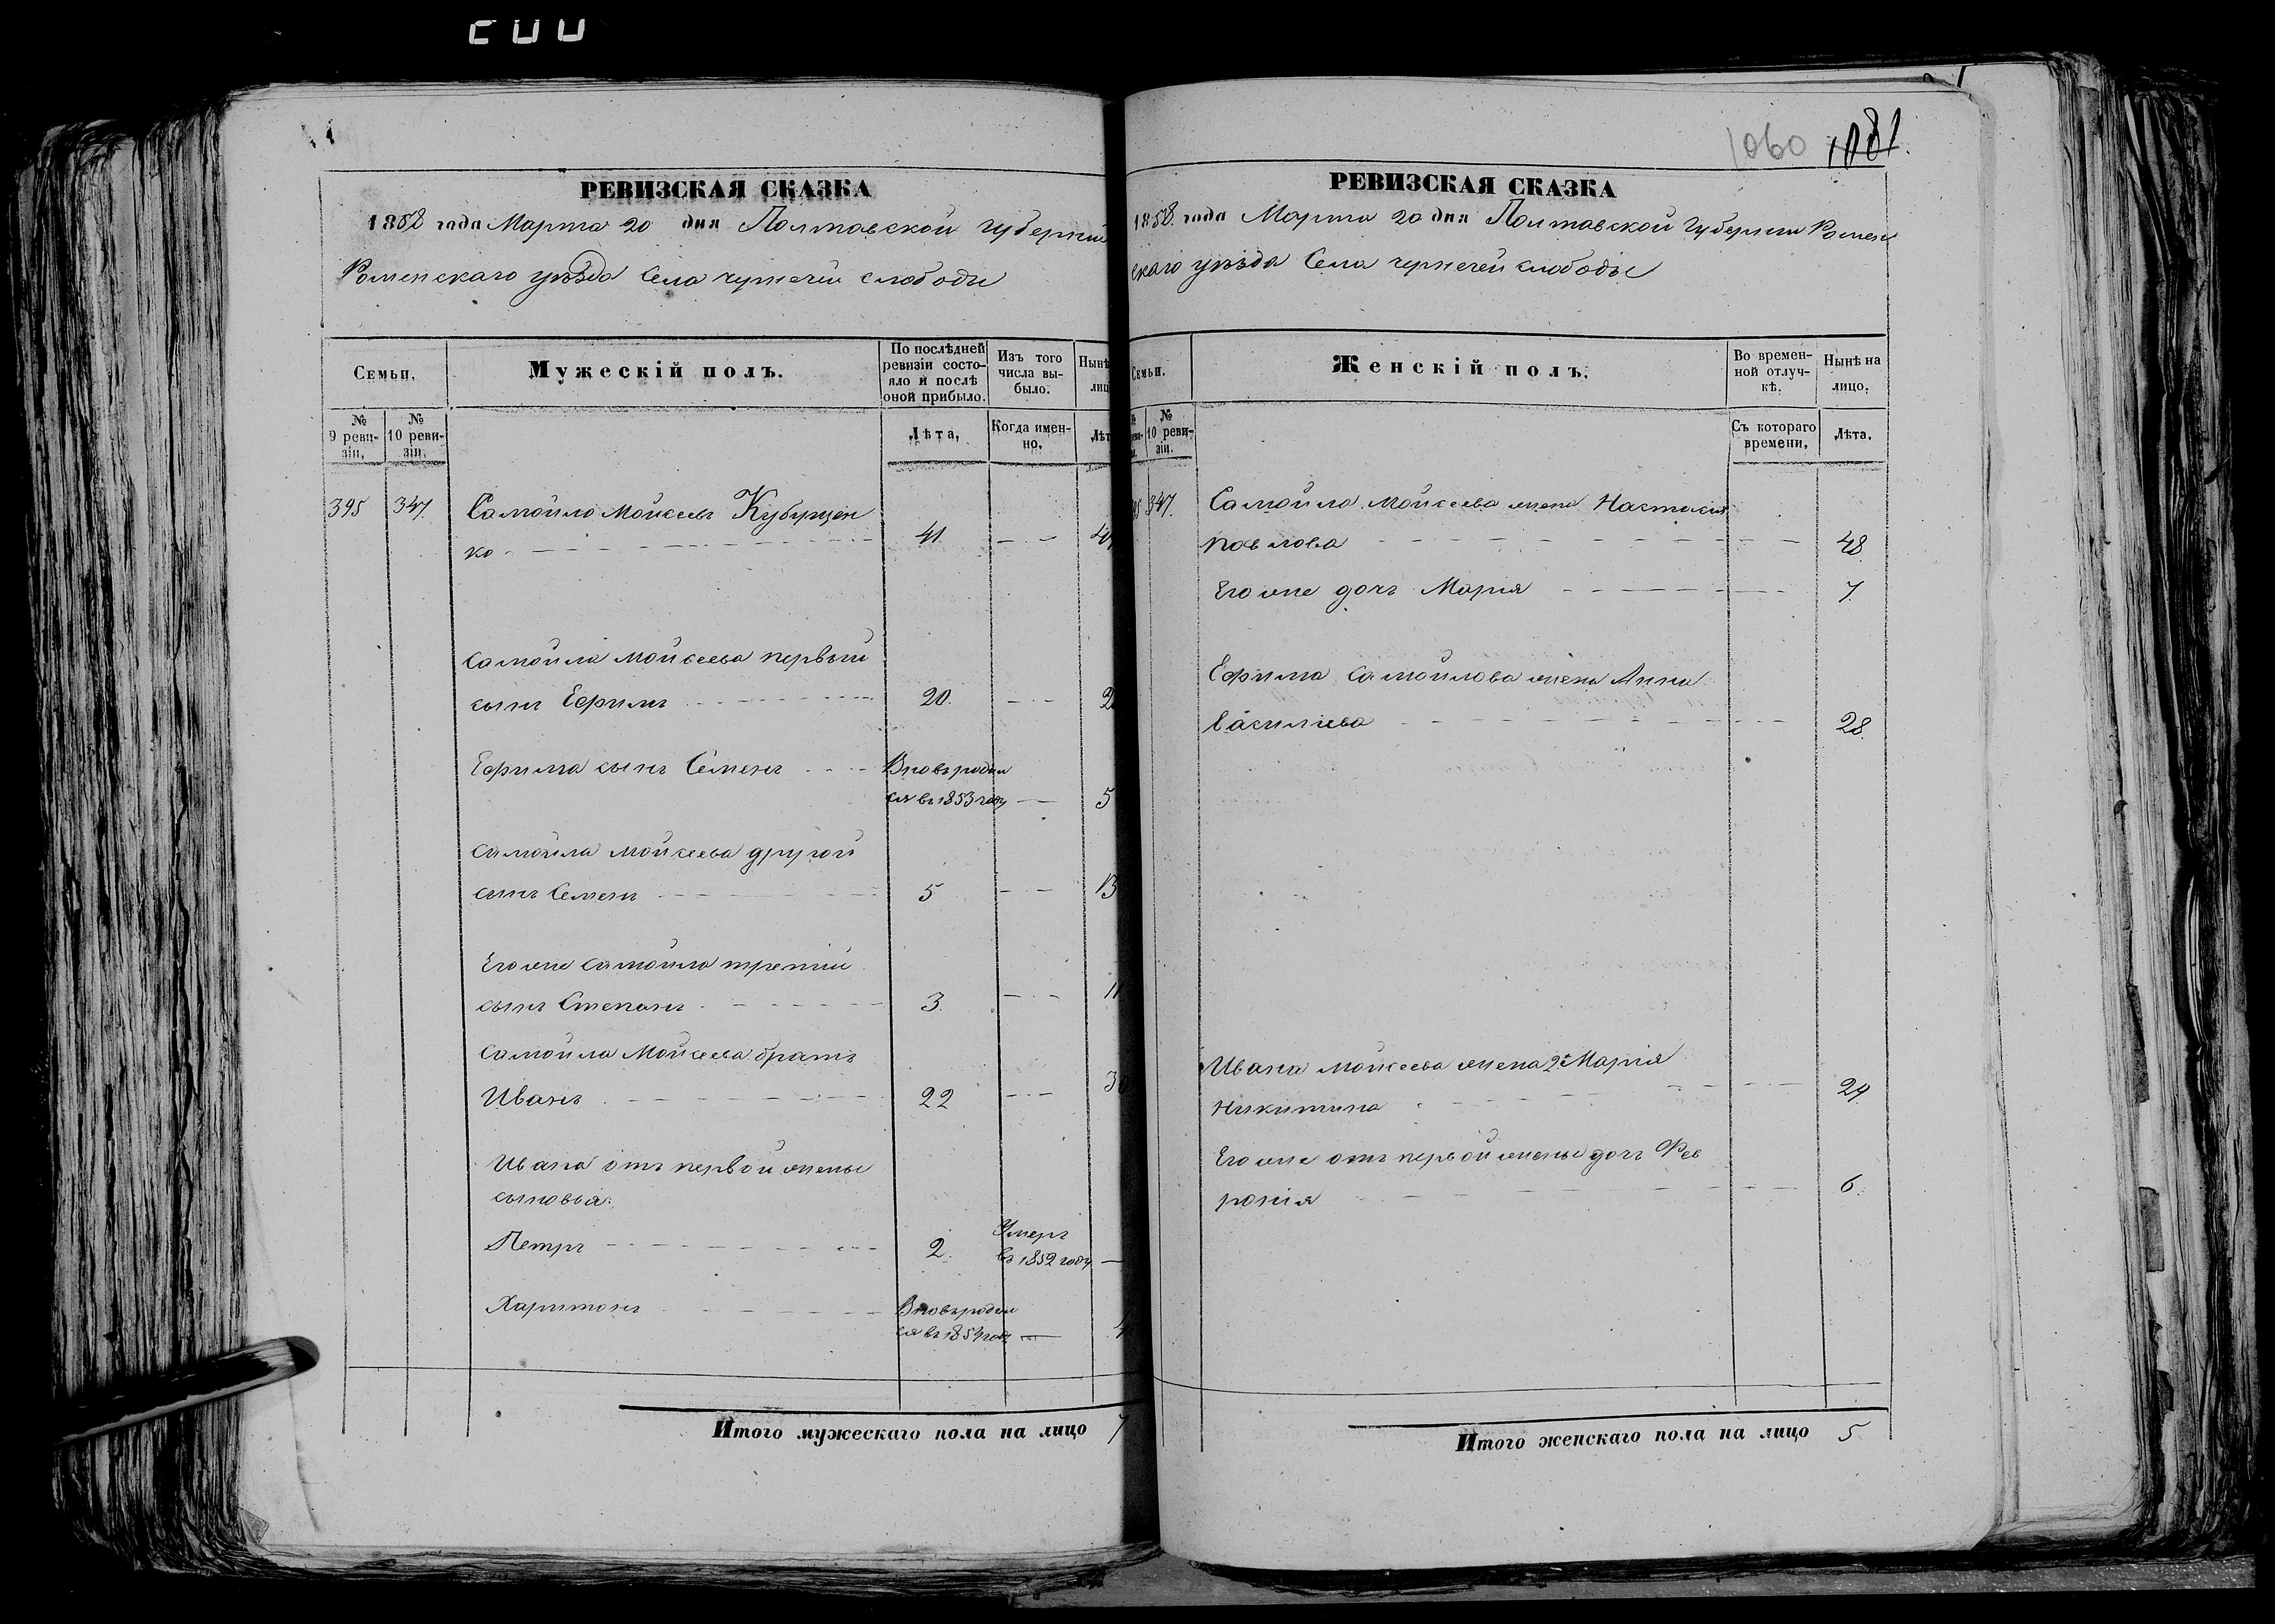 1060 1081.
РЕВИЗСКАЯ СКАЗКА
1858 года Марта 20 дня Полтавской губерніи
Роменскаго уѣзда Села чернечей слободы
Семьи.
Мужескій полъ.
По послѣдней ревизіи состояло и послѣ оной прибыло.
Изъ того числа выбыло.
Нынѣ
лиц
№ 9 ревизіи.
№ 10 ревизіи.
Лѣта.
Когда именно.
Лѣт
395 347. Самойло Мойсеевъ Кубрицен
ко 41. 49
Самойла Мойсеева первый
сынъ Ефримъ 20. 2
Ефрима сынъ Семенъ Вновьродил
ся въ 1853 году 5
Самойла Мойсеева другой
сынъ Семенъ 5 13
Его же Самойла третій
сынъ Степанъ 3. 11
Самойла Мойсеева братъ
Иванъ 22 30
Ивана отъ первой жены
сыновья:
Петръ 2. Умеръ
въ 1852 году
Харитонъ Вновьродил
ся въ 1854 году 4
Итого мужескаго пола на лицо 7
РЕВИЗСКАЯ СКАЗКА
1858. года Марта 20 дня Полтавской Губерніи Ромен
скаго уѣзда Села чернечей слободы
Семьи.
Женскій полъ.
Во временной отлучкѣ.
Нынѣ на лицо.
№ 10 ревизіи.
Съ котораго времени.
Лѣта.
95 347. Самойла Мойсеева жена Настасія
Павлова 48.
Его же дочь Марія 7.
Ефрима Самойлова жена Анна
Василіева 28.
Ивана Мойсеева жена 2я Марія
Никитина 24.
Его же отъ первой жены дочь Фев
ронія 6.
Итого женскаго пола на лицо 5